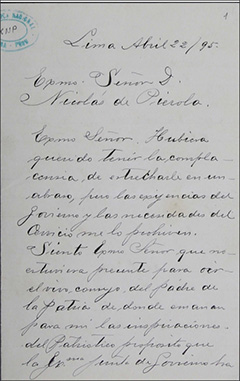 1
Lima Abril 22/95.
Exmo. Señor D.
Nicolas de Piérola.
Exmo Señor. Hubiera
querido tener la compla-
cencia, de estrecharle en un
abrazo, pero las exijencias del
Govierno y las necesidades del
Servicio me lo prohiven.
Siento Exmo Señor que no
estuviera presente para oir
el vivo consejo, del Padre de
la Patria de donde emanan
para mi las inspiraciones
del Patriotico proposito que
la Junta de Govierno ha